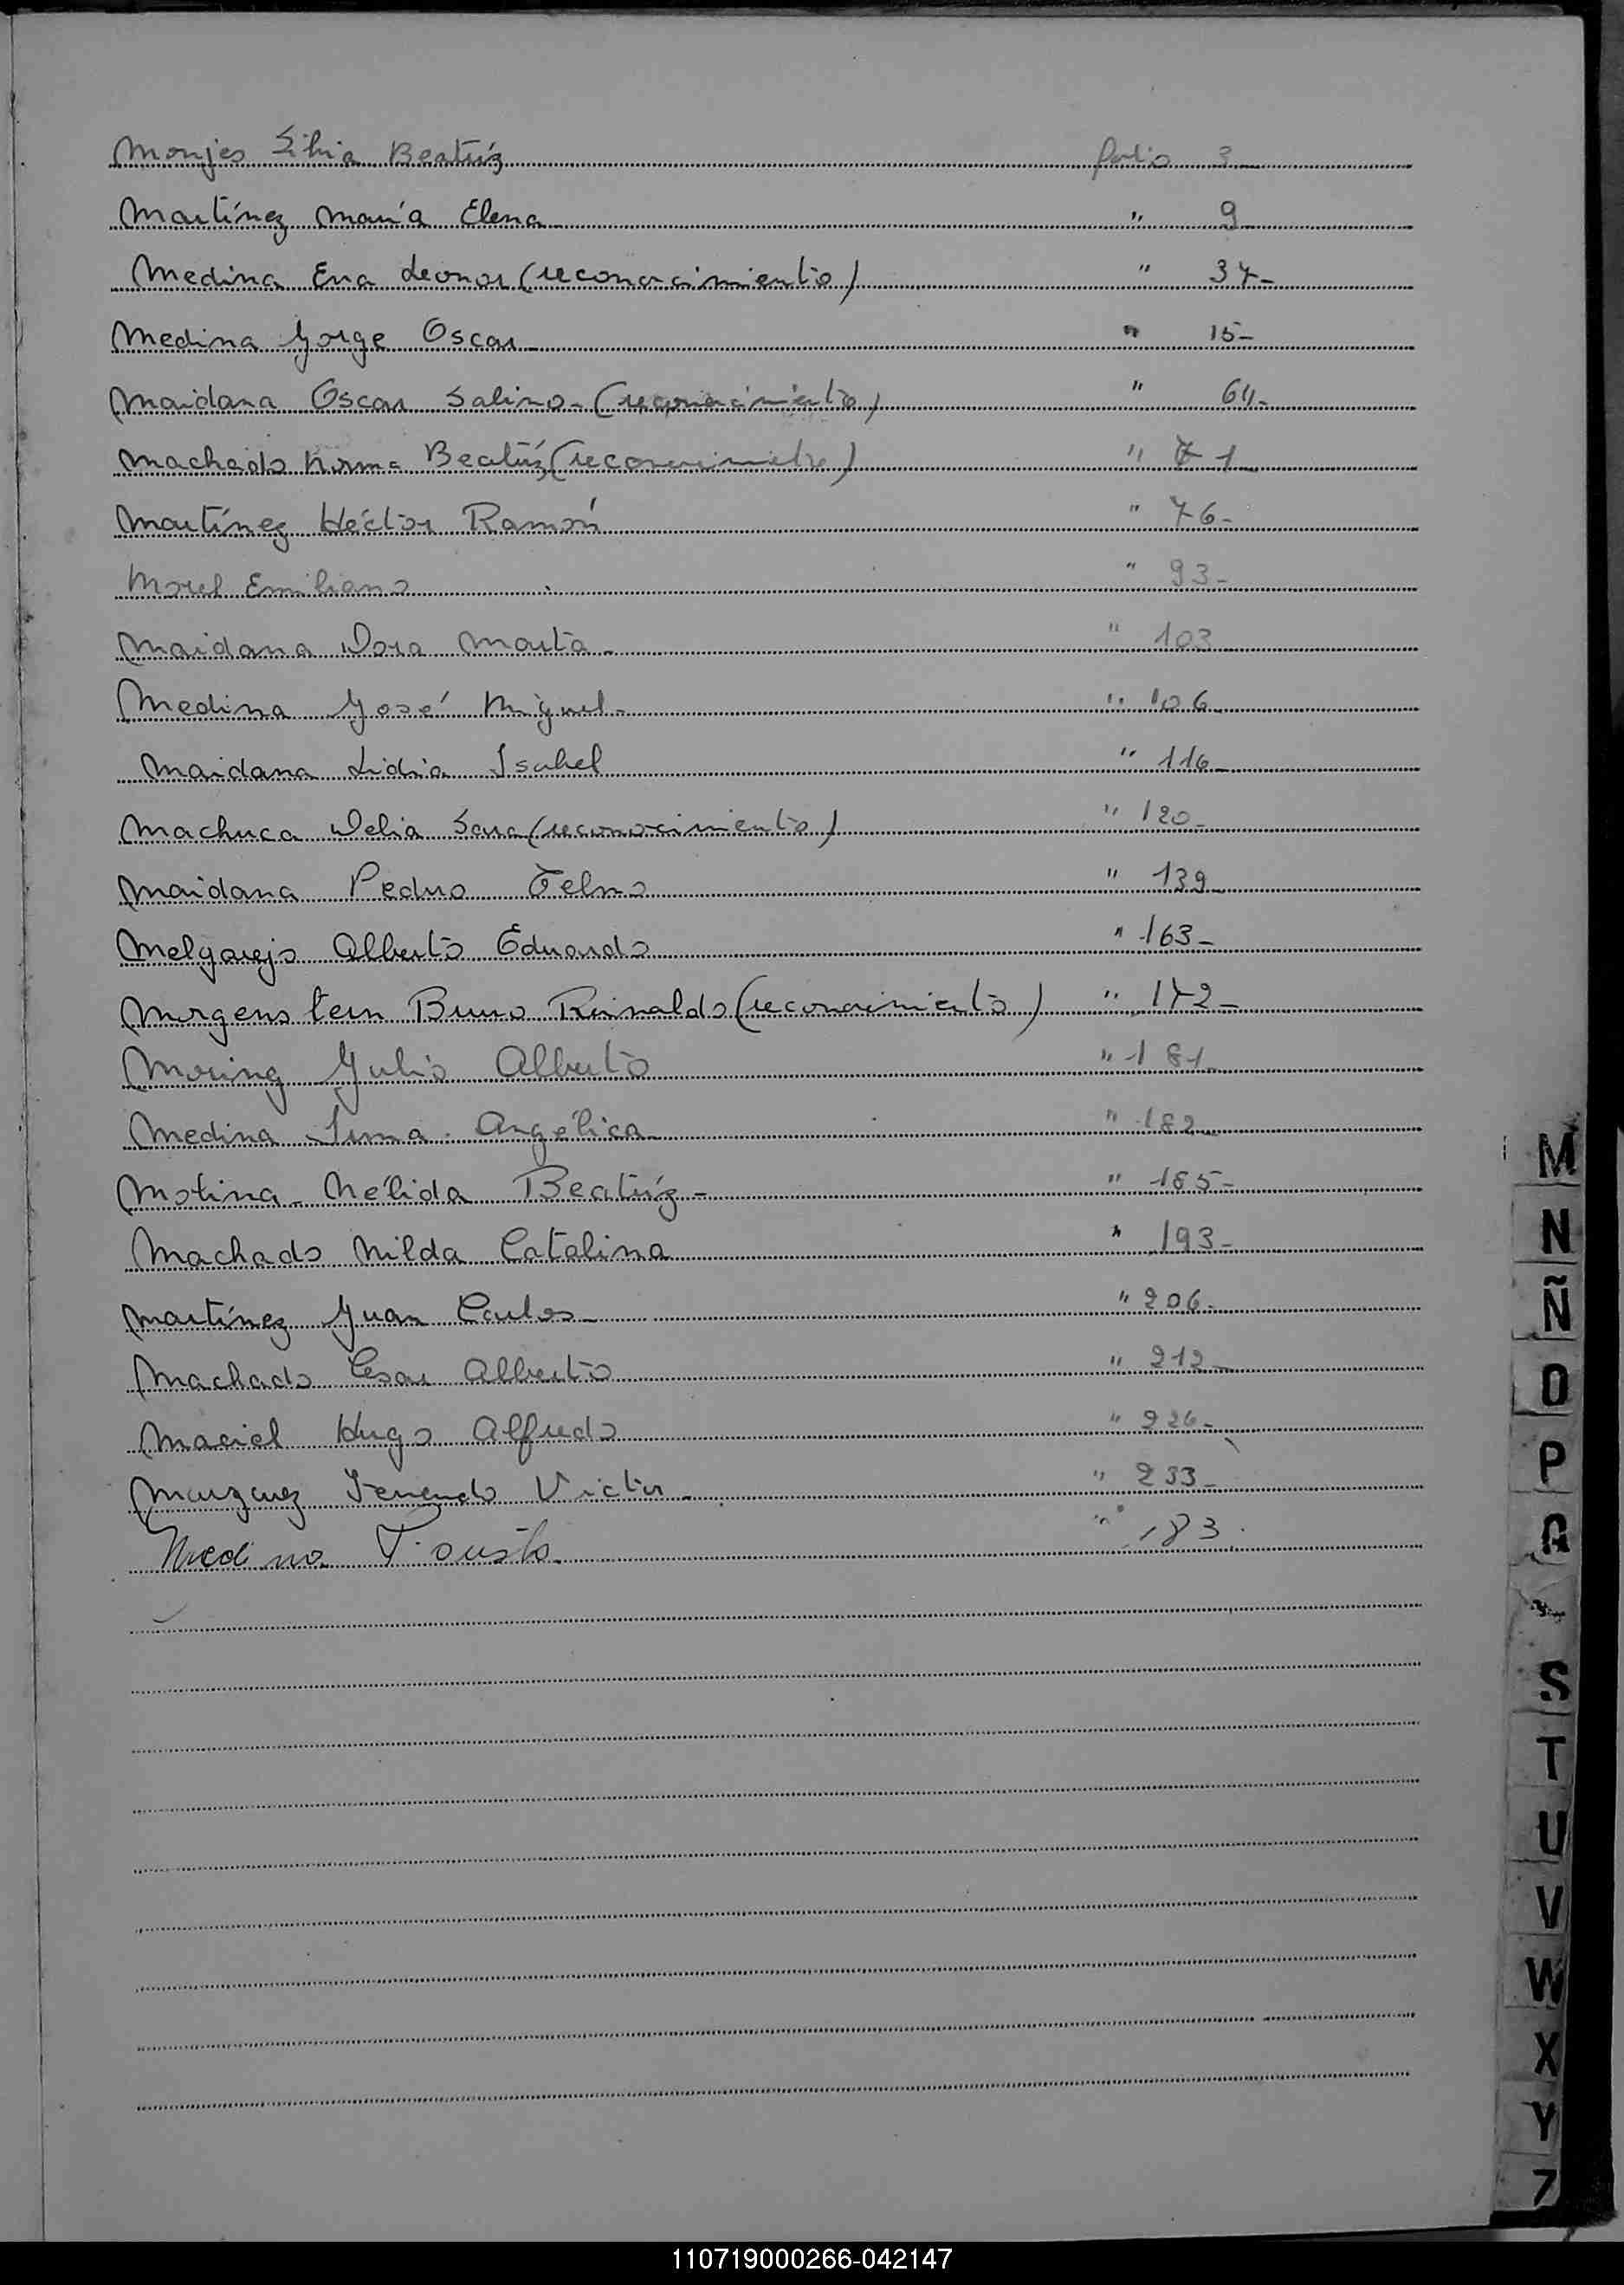 Monjes Silvia Beatríz folio 3
Martínez María Elena " 9
Medina Eva Leonor (reconocimiento) " 37-
Medina Jorge Oscar " 15-
Maidana Oscar Salino- (reconocimiento) " 64-
Machado Norma Beatríz (reconocimiento) " 71
Martínez Héctor Ramón " 76-
Morel Emiliano " 93-
Maidana Dora Marta- " 103
Medina José Miguel- " 106
Maidana Lidia Isabel " 116
Machuca Delia Sara (reconocimiento) " 120-
Maidana Pedro Telmo " 139
Melgarejo Alberto Eduardo " 163-
Morgenstern Bruno Reinaldo (reconocimiento) " 172-
Moring Julio Alberto " 181
Medina Irma Angélica " 182
Molina- Nélida Beatríz- " 185-
Machado Nilda Catalina " 193-
Martínez Juan Carlos- " 206-
Machado Cesar Alberto " 212
Maciel Hugo Alfredo " 226-
Victor- " 233-
Medina " 183.
M
N
Ñ
O
P
Q
S
T
U
V
W
X
Y
Z
110719000266-042147